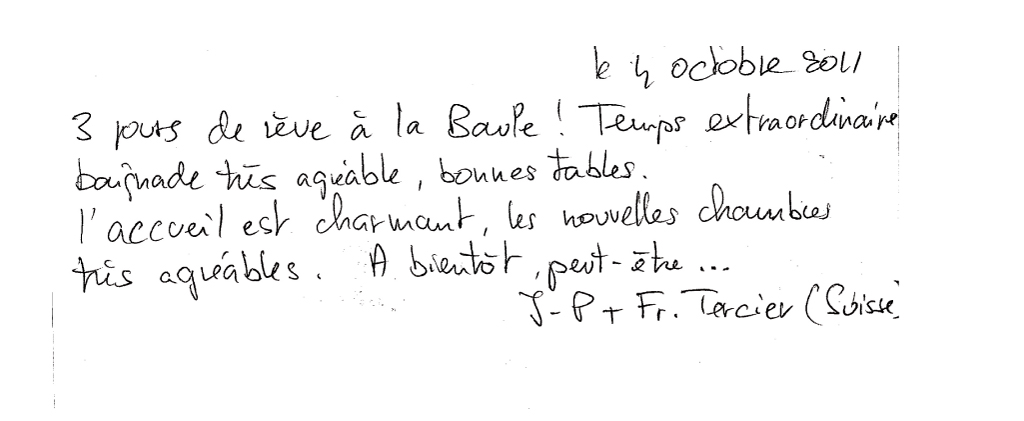 le 4 octobre 2011
3 jours de rêve à la Baule ! Temps extraordinaire
baignade très agréable, bonnes tables.
l'accueil est charmant, les nouvelles chambres
très agréables. A bientôt, peut-être ...
J-P + Fr. Tercier (Suisse)